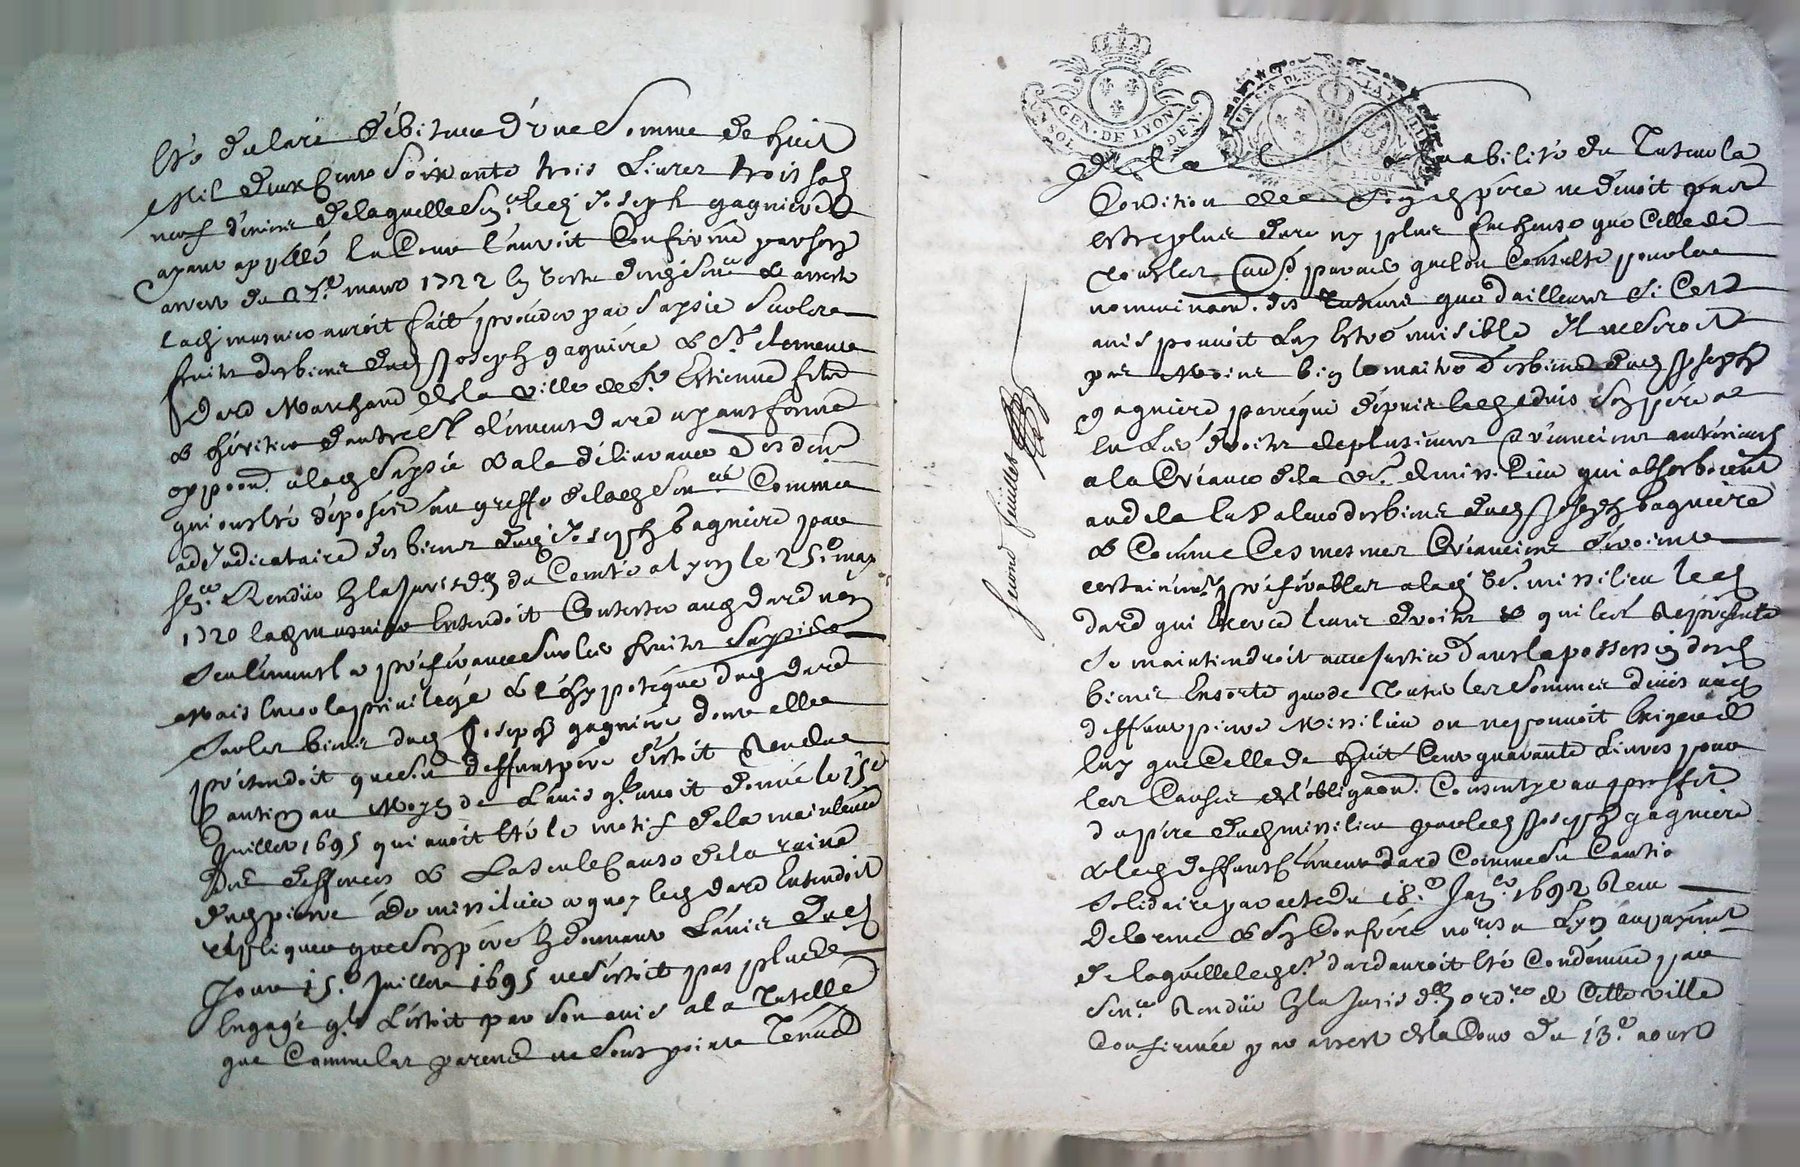 esté déclaré débiteur d'une somme de huit
mil deux cents soixante trois livres trois sols
neuf deniers de laquelle Sence led Joseph gagniere
ayant appellé la Cour l'auroit Confirmé par son
arrest du 27e mars 1722 En vertu desd Sence & arrest
lad meusnier auroit fait proceder par saysie sur les
fruits des biens dud Joseph gagniére & Sr Clement
Dard Marchand de la ville de St Estienne fils
& héritier d'autre Sr Clement dard ayant formé
oppoon a lad Saysie & a la délivrance des deniers
qui ont esté déposés au greffe de lad Sence Comme
adjudicataire des biens dud Joseph Gagniere par
Sence Rendüe En la Jurisdon du Comté a lyon le 25e may
1720 lad meusnier Entendoit Contester aud dard non
seulement la préférance sur les fruits saysies
Mais Encor le privilege & l'hypoteque dud dard
sur les biens dud Joseph gagniere dont elle
prétendoit que son deffunt pére s'estoit Rendue
Caution au Moyen de l'avis ql avoit donné le 15e
Juillet 1695 qui avoit esté le motif de la mainlevée
des deffences & la seule Cause de la ruine
dud pierre de missilieu a quoy led dard Entendoit
repliquer que son pére En donnant l'avis dud
Jour 15e Juillet 1695 ne s'estoit pas plus
Engagé ql l'estoit par son avis a la Tutelle
que Comme les parens ne sont point Tenus
de la solvabilité du Tuteur la
Condition de son pére ne devoit pas
estre plus dure ny plus facheuse que Celle de
tous les parens quel'on Consulte pour la
nominaon des Tuteurs que d'ailleurs si Cet
avis pouvoit luy estre nuisible Il ne seroit
pas Moins bien le maitre des biens dud Joseph
gagniere parcequi dépuis led advis son pére a
eu les droits de plusieurs Créanciers antérieurs
a la Créance de la de missilieu qui absorboient
au dela la valeur des biens dud Joseph Gagniére
& Comme Ces mesmes Créanciers étoient
certainemt préférables a lad de missilieu led
dard qui Exerce leurs droits & qui les Représente
se maintiendroit avec Justice dans la possession desd
biens Ensorte que de toutes les sommes deües aud
deffunt pierre Missilieu on ne pouvoit Exiger de
luy que Celle de huit Cent quarante livres pour
les Causes de l'obligaon Consentye au proffit
du pére dud missilieu par led Joseph gagniere
& led deffunt Clement dard Comme sa Caution
solidaire par acte du 18e Janer 1692 Receu
Delorme & son Confrére nores a Lyon au payemt
de laquelle led Sr dard auroit esté Condemné par
Sence Rendüe En la Jurison ordre de Cette ville
Confirmée par arrest de la Cour du 13e aoust
Second feuillet
GEN. DE LYON